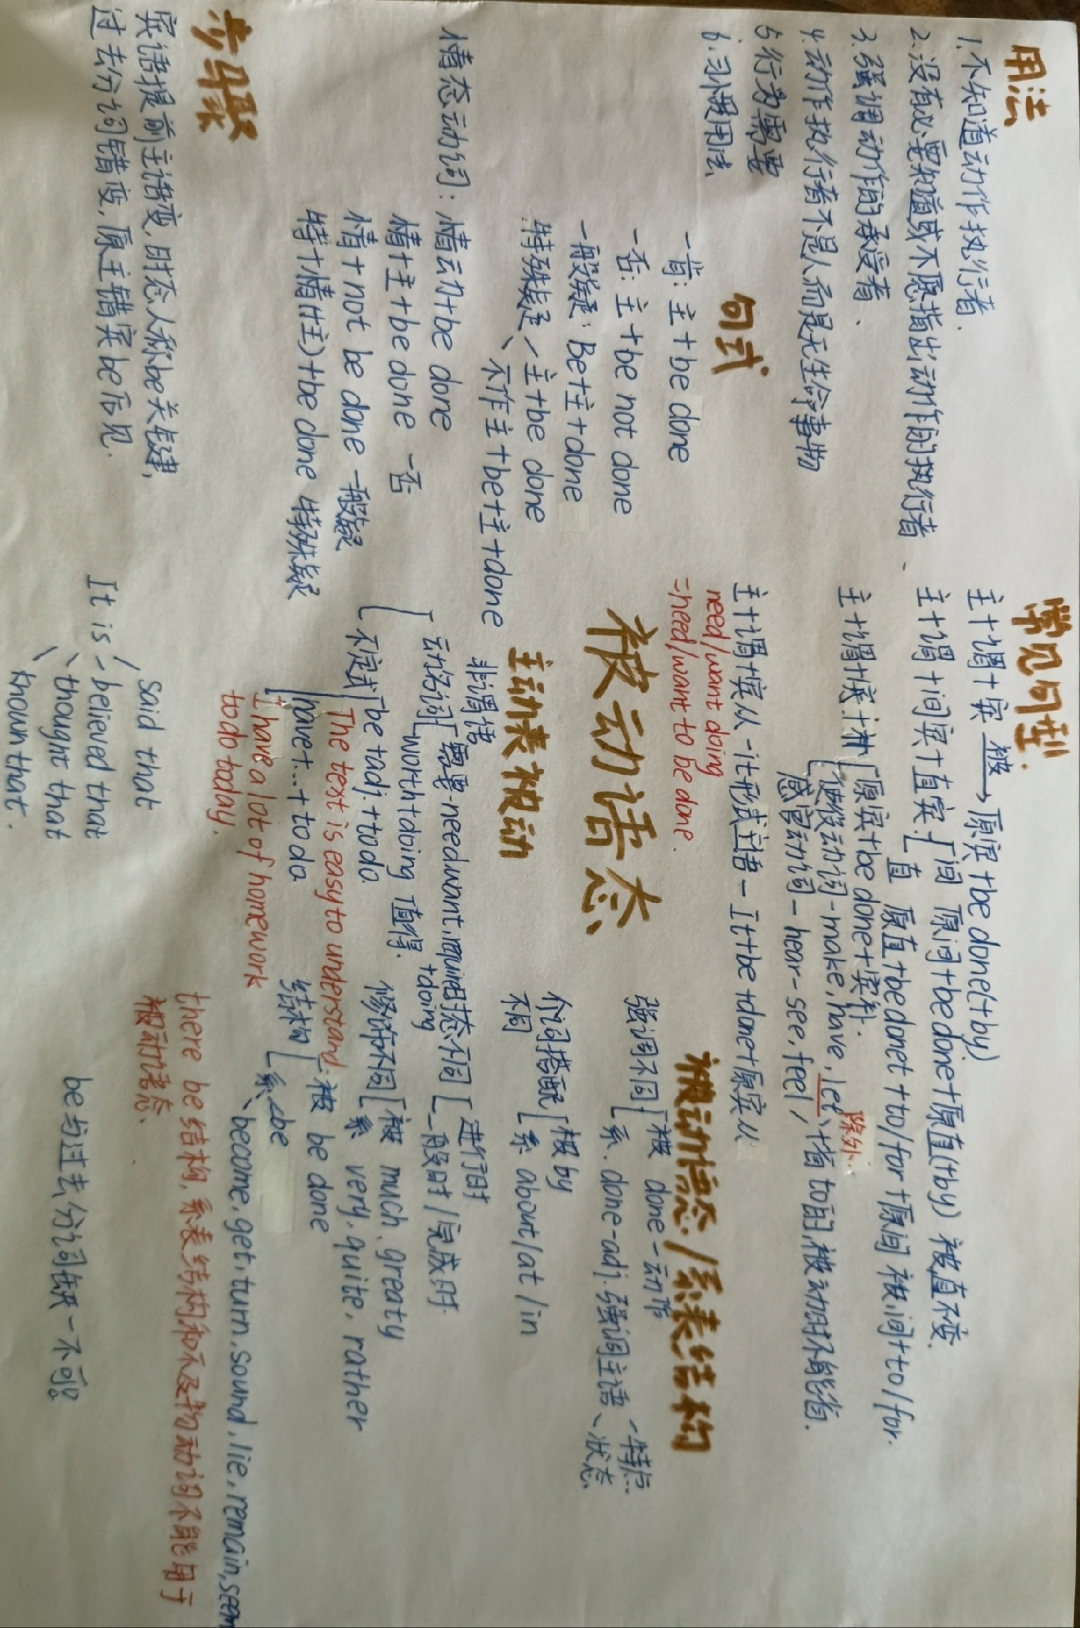 用法
1.不知道动作执行者.
2.没有必要知道或不愿指出动作的执行者、
3.强调动作的承受者、
4.动作执行者不是人而是无生命事物
5.行为需要
6.习惯用法
句式
一肯:主+be done
一否:主+be not done
一般疑:Be+主+done
特殊疑 主+be done
不作主+be+主+done
情态动词:情动+be done
情+主+be done 一否
情+not be done 一般疑
特+情(主)+be done 特殊疑
步骤
宾语提前主语变,时态人称be关键,
过去分词错变,原主错宾by后见.
常见句型:
主+谓+宾 被→ 原宾+be done(+by)
主+谓+间宾+直宾. 间 原间+be done+原直(+by) 被直不变.
直 原直+be done+to/for+原间 被间+to/for.
主+谓+宾+补 原宾+be done+宾补.
使役动词-make,have,let 除外
感官动词-hear-see,feel,省to的,被动时不能省.
主+谓+宾从-it形式主语-It+be+done+原宾从
need/want doing
=need/want to be done.
被动语态
主动表被动
非谓语
动名词 需要-need,want,require+doing
worth+doing 值得.
不定式 be+adj+to do
The text is easy to understand.
have+...+to do
I have a lot of homework
to do today.
It is said that
believed that
thought that
known that.
被动语态/系表结构
强调不同 被 done-动作
系 done-adj.强调主语 特点
状态
介词搭配不同 被by
系about/at/in
时态不同 进行时
一般时/完成时.
修饰不同 被 much, greaty
系 very, quite, rather
结构 被 be done
系 be
become,get,turn,sound,lie,remain,seem
there be结构,系表结构和不及物动词不能用于
被动语态.
be与过去分词缺一不可。